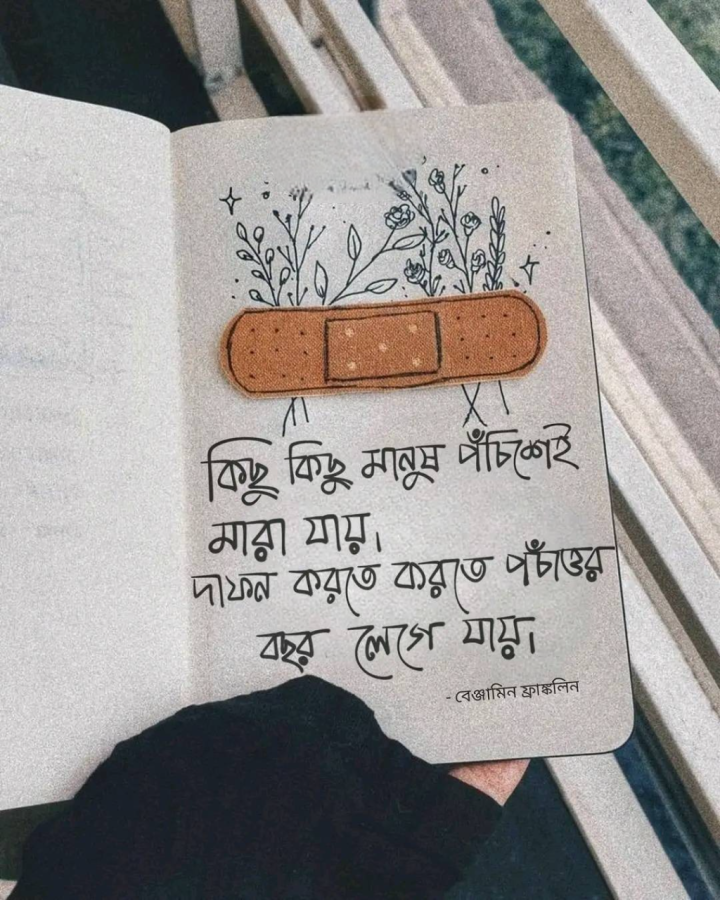 কিছু কিছু মানুষ পঁচিশেই
মারা যায়।
দাফন করতে করতে পঁচাত্তর
বছর লেগে যায়।
- বেঞ্জামিন ফ্রাঙ্কলিন